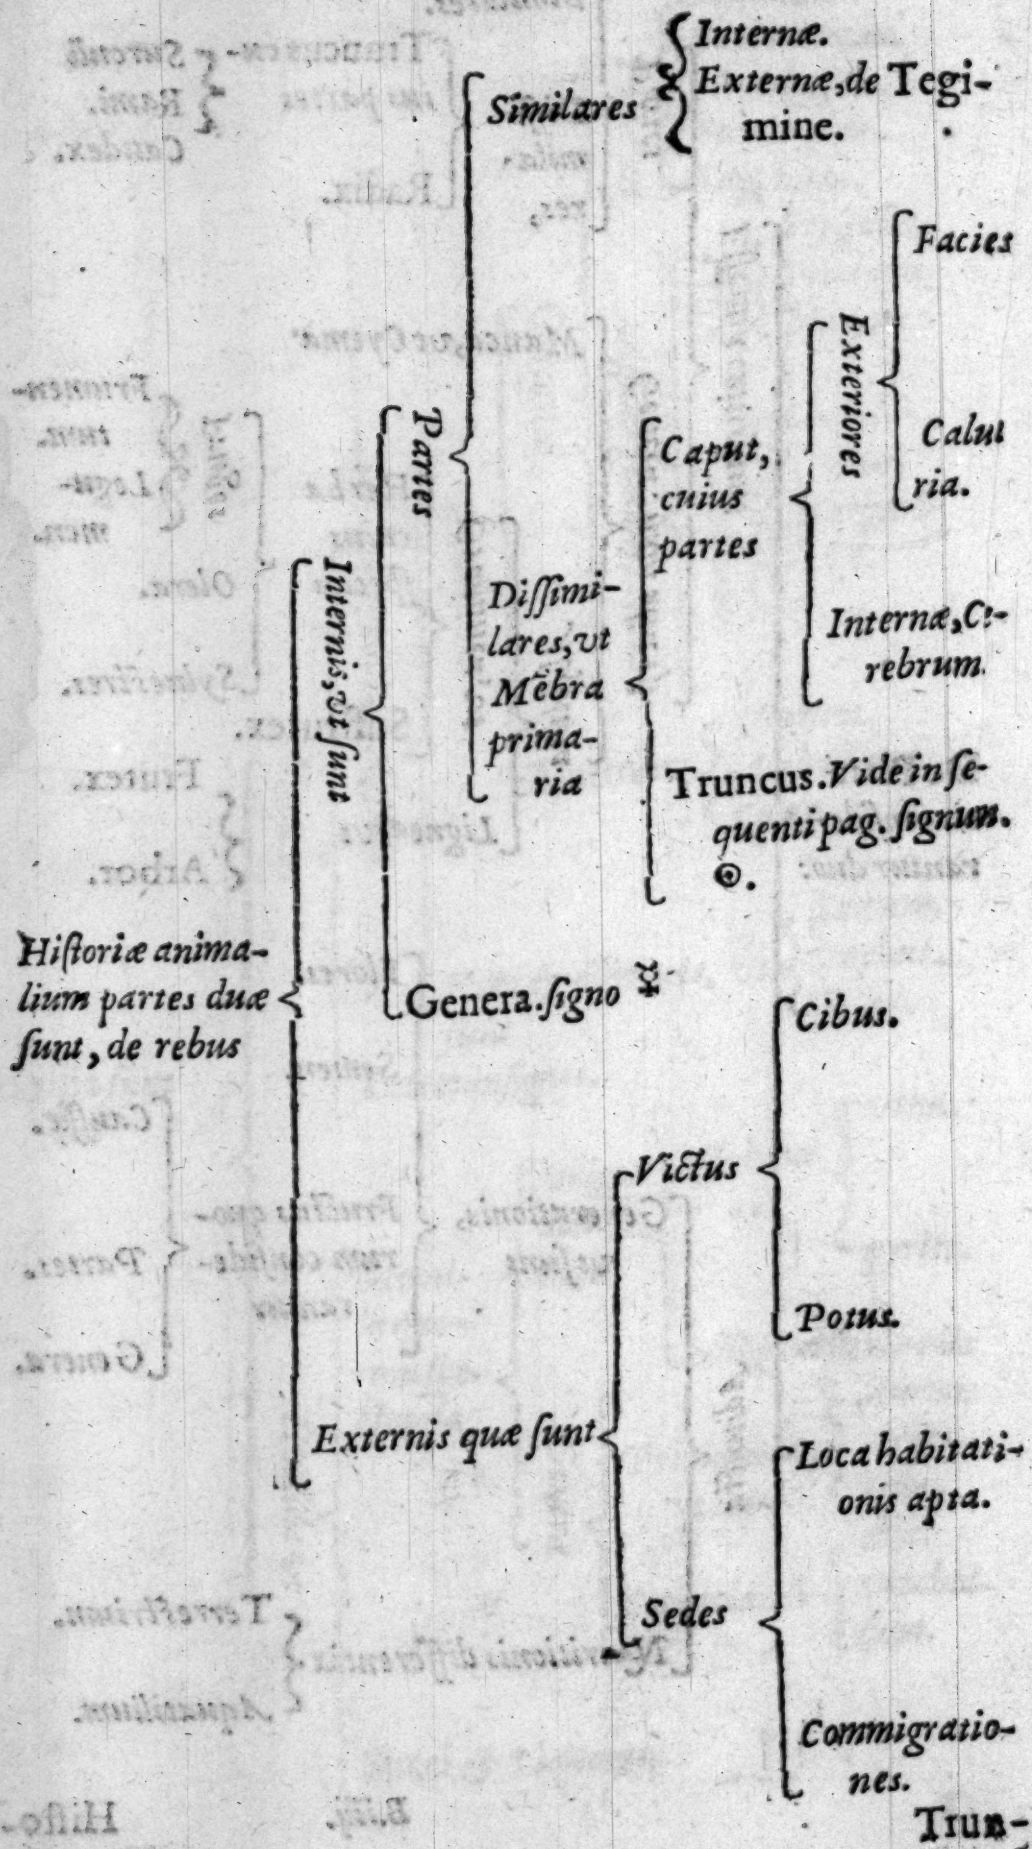 Historiæ anima-
lium partes duæ
ſunt, de rebus
Internis, vt ſunt
Partes
Similares
Internæ.
Externæ, de Tegi-
mine.
Diſſimi-
lares, vt
Mēbra
prima-
ria
Caput,
cuius
partes
Exteriores
Facies
ria.
Internæ, Ce-
rebrum.
Truncus. Vide in ſe-
quenti pag. ſignum.
☉.
Genera. ſigno ☿
Externis quæ ſunt
Victus
Cibus.
Potus.
Sedes
Loca habitati-
onis apta.
Commigratio-
nes.
Trun-